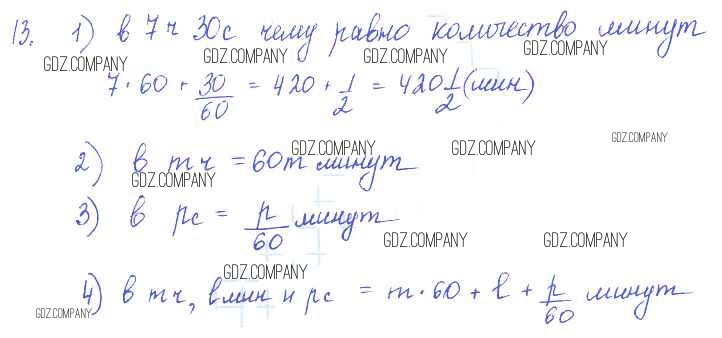 13. 1) в 7 ч 30 с чему равно количество минут
GDZ.COMPANY GDZ.COMPANY GDZ.COMPANY GDZ.COMPANY
7·60 + 30/60 = 420 + 1/2 = 420 1/2 (мин)
GDZ.COMPANY
2) в m ч = 60m минут
GDZ.COMPANY GDZ.COMPANY
GDZ.COMPANY
3) в pс = p/60 минут
GDZ.COMPANY GDZ.COMPANY
GDZ.COMPANY
4) в m ч, l мин и pс = m·60 + l + p/60 минут
GDZ.COMPANY